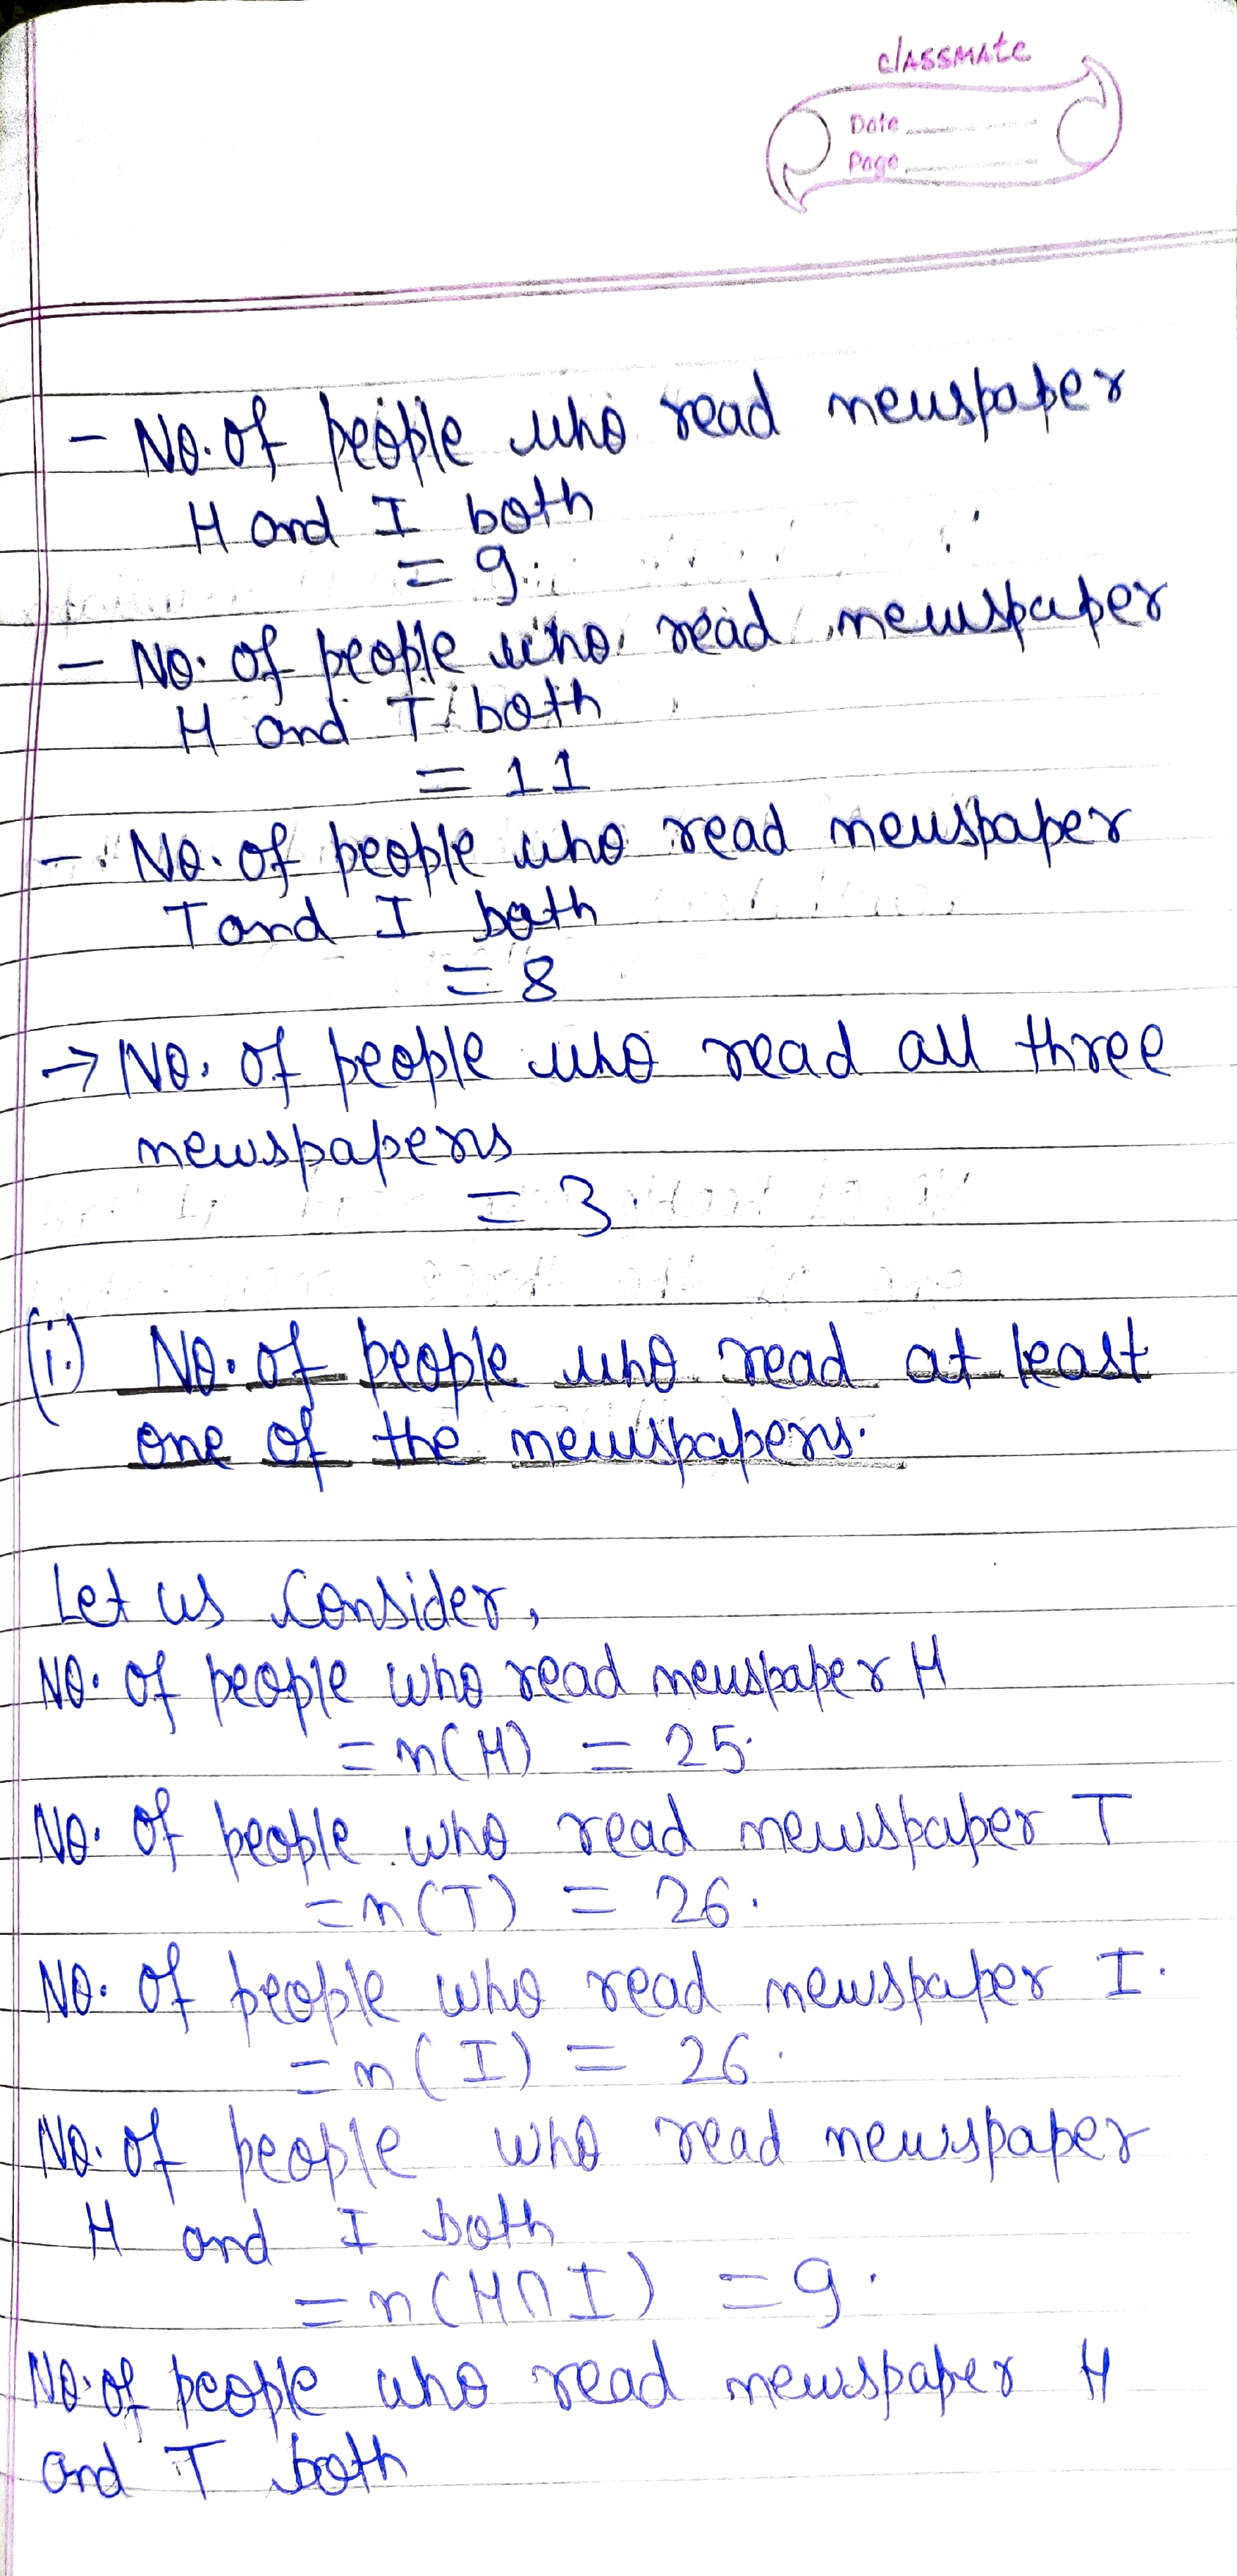 classmate
Date
Page
- No. of people who read newspaper
H and I both
= 9.
- No. of people who read newspaper
H and T both
= 11
- No. of people who read newspaper
T and I both
= 8
→ No. of people who read all three
newspapers
= 3.
(i.) No. of people who read at least
one of the newspapers.
Let us Consider,
No. of people who read newspaper H
= n(H) = 25.
No. of people who read newspaper T
= n(T) = 26.
No. of people who read newspaper I.
= n(I) = 26.
No. of people who read newspaper
H and I both
= n(H∩I) = 9.
No. of people who read newspaper H
and T both